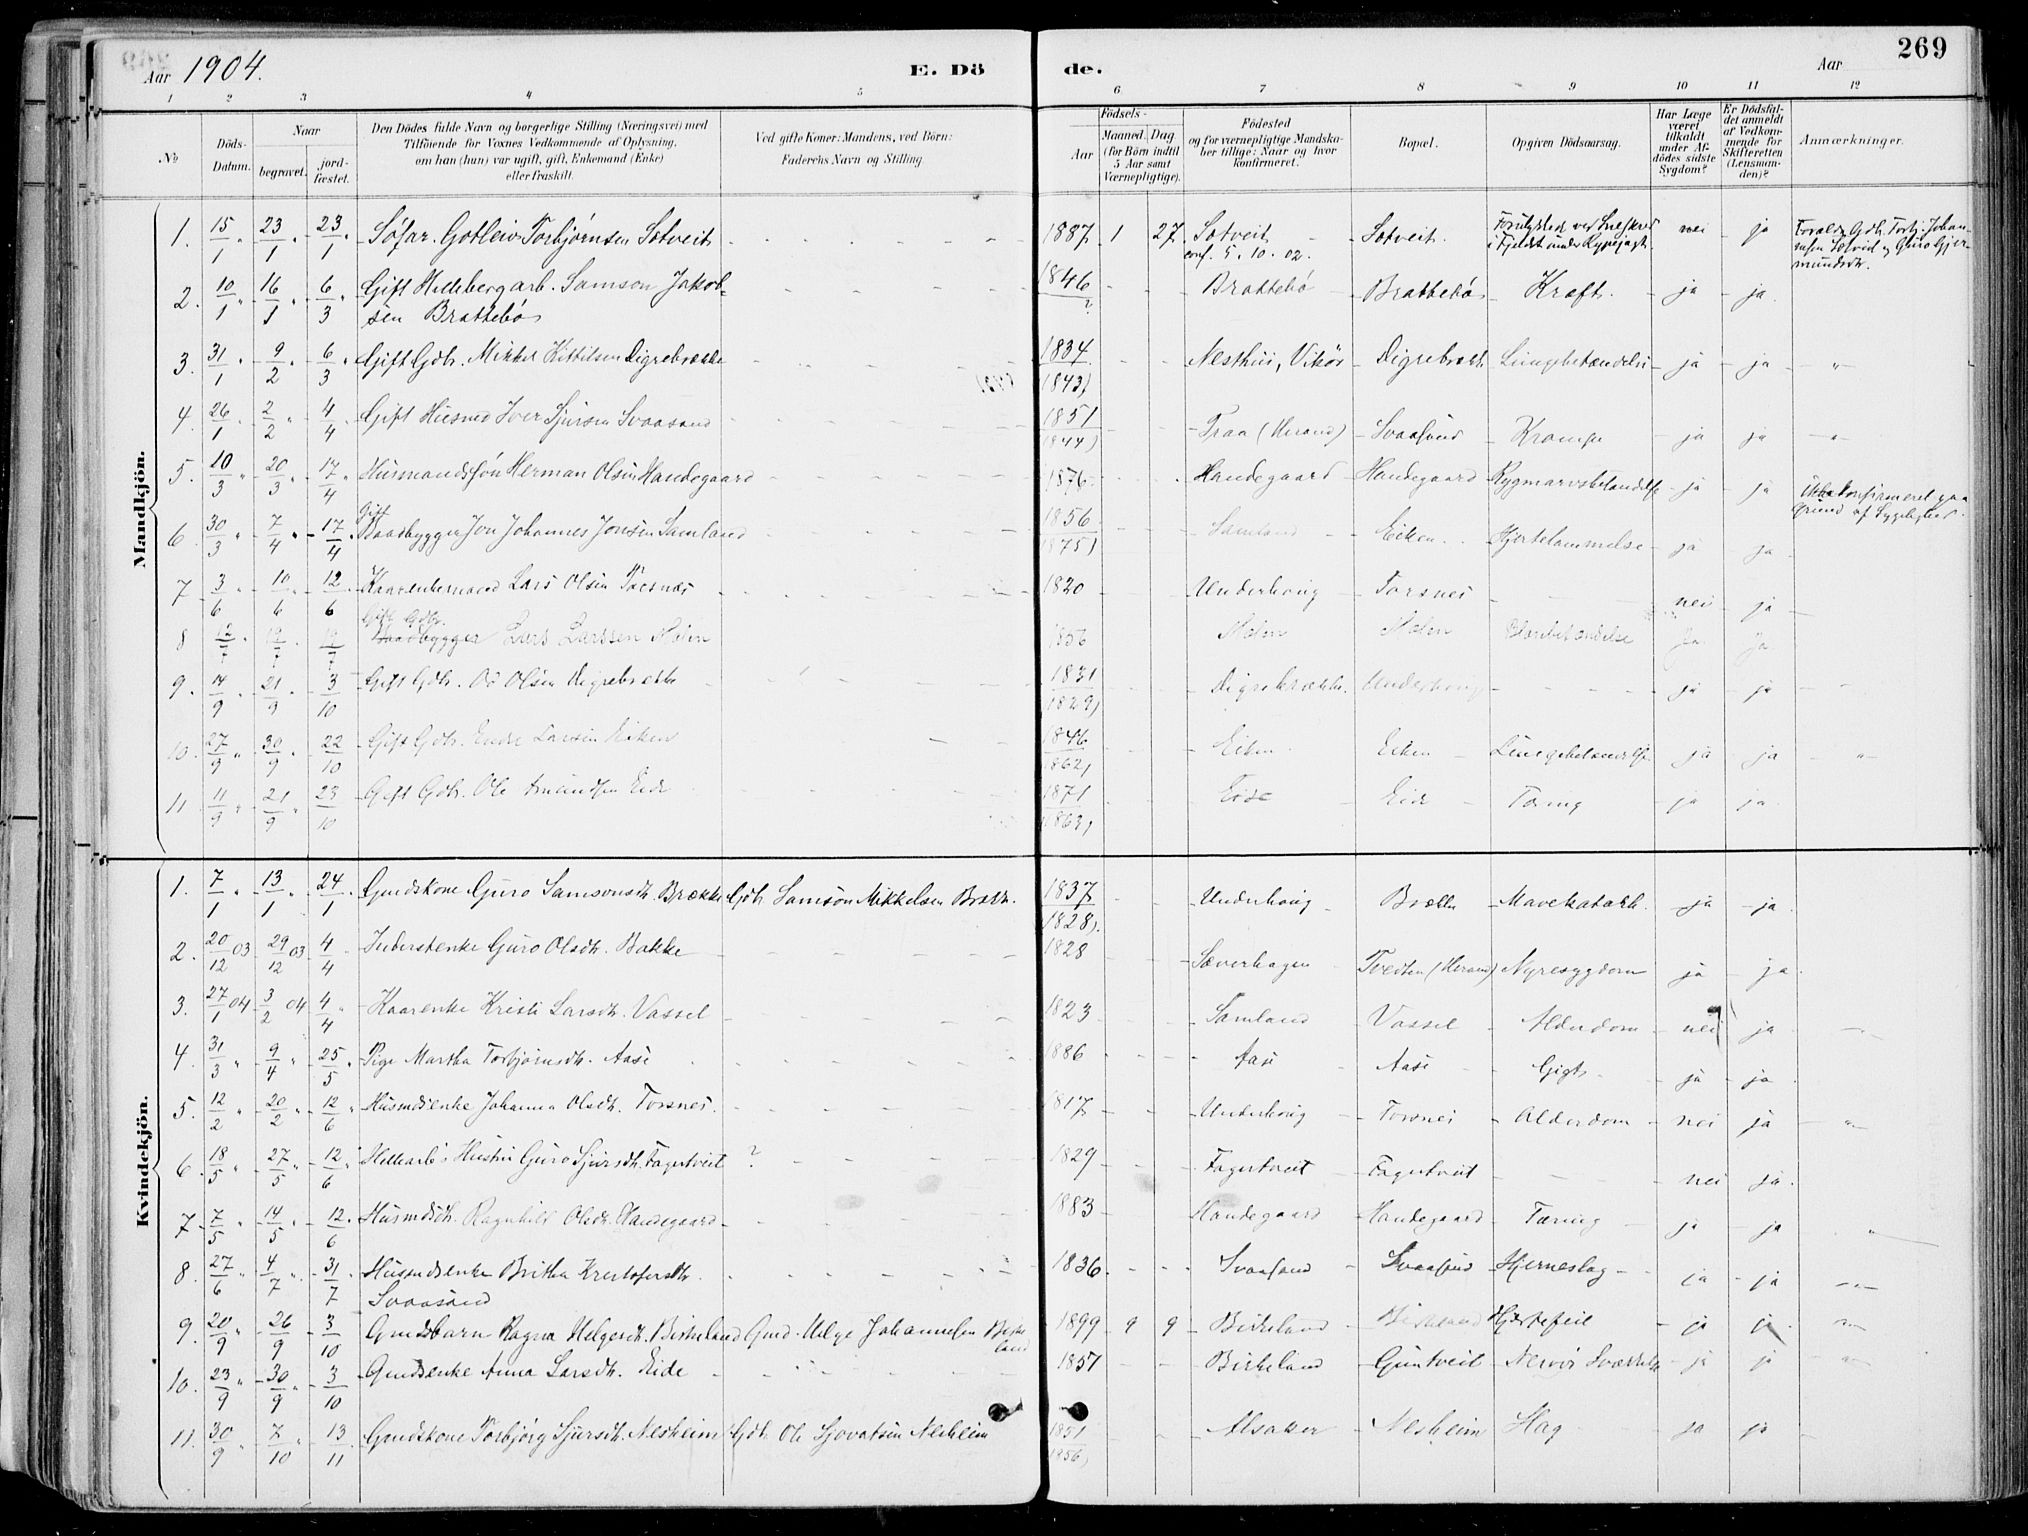 Aar 1904.
E. Dö
de.
Aar
269
1 2 3 4 5 6 7 8 9 10 11 12
No
Döds-Datum.
Naar
begravet.
jord-fæstet.
Den Dödes fulde Navn og borgerlige Stilling (Næringsvei) med
Tilföiende for Voxnes Vedkommende af Oplysning,
om han (hun) var ugift, gift, Enkemand (Enke)
eller fraskilt.
Ved gifte Koner: Mandens, ved Börn:
Faderens Navn og Stilling.
Födsels-
Aar
Maaned. Dag
(for Börn indtil
5 Aar samt
Værnepligtige).
Födested
og for værnepligtige Mandska-
ber tillige: Naar og hvor
konfirmeret.
Bopæl.
Opgiven Dödsaarsag.
Har Læge
været
tilkaldt
under Af-
dödes sidste
Sygdom?
Er Dödsfal-
det anmeldt
af Vedkom-
mende for
Skifteretten
(Lensman-
den)?
Anmærkninger.
Mandkjön.
1. 15/1 " 23/1 " 23/1 " Søfar. Gotleiv Torbjørnsen Sotveit 1887 1 27 Sotveit Sotveit. nei ja
conf. 5. 10. 02.
2. 10/1 " 16/1 " 6/3 " Gift Hellebergarb. Samson Jakob-
sen Brattebø 1846 ? Brattebø Brattebø Kræft. ja ja.
3. 31/1 " 9/2 " 6/3 " Gift Gdbr. Mikkel Kittilsen Digrebrække 1834 Nesthus, Vikør Digrebrekk Lungebetændelse ja ja "
1843)
4. 26/1 2/2 " 4/4 Gift Husmd Iver Sjursen Svaasand 1851 Traa (Herand) Svaasand Krampe ja ja "
1844)
5. 10/3 " 20/3 " 17/4 Husmandssøn Herman Olsen Handegaard 1876 Handegaard Handegaard Rygmarvsbetændelse ja ja Ikke konfirmeret paa
Grund af Sygelighed.
Gift
6. 30/3 " 7/4 17/4 Baadbygger Jon Johannes Jonsen Samland 1856 Samland Eiken. Hjertelammelse ja ja
1875)
7 3/6 " 10/6 12/6 Kaarenkemand Lars Olsen Torsnes 1820 Underhaug Torsnes nei ja
Gift Gdbr.
8 12/7 19/7 Baadbygger Lars Larssen Molin 1856 Ja Ja
9. 14/9 " 21/9 " 3/10 Gift Gdbr. Od Olsen Digrebrekk 1831 Digrebrække. Underhaug ja ja "
1829)
10. 27/9 " 30/9 " 22/10 Gift Gdbr. Endre Larsen Eiken 1846 Eiken Eiken Lungebetændelse ja ja "
1862)
11 11/9 " 21/9 " 23/10 Gift Gdbr. Ole Amundsen Eide 1871 Eide Eide Tæring ja ja.
1863)
Kvindekjön.
1. 7/1 " 13/1 " 24/1 Gmdskone Guro Samsonsdtr. Brække Gdbr. Samson Mikkelsen Brækk. 1837 Underhaug Brække Mavekatarrh. ja ja.
1828)
2. 20/12 03 29/12 03 4/4 Guro Olsdtr. Bakke 1828 Sæverhagen Tvedten (Herand) Nyresygdom ja ja
3. 27/1 04 3/2 04 4/4 " Kaarenke Kristi Larsdtr. Vassel 1823 Samland Vassel Alderdom nei ja
4. 31/3 " 9/4 " 25/5 " Pige Martha Torbjørnsdtr. Aase 1886 Aase Aase Gigt ja ja
5. 12/2 " 20/2 " 12/6 " Husmdsenke Johanna Olsdtr. Torsnes. 1817 Underhaug Torsnes Alderdom nei ja "
6. 18/5 " 27/5 " 12/6 " Hustru Guro Sjursdtr. Fagertveit ? 1829 Fagertveit Fagertveit nei ja.
7 7/5 " 14/5 " 12/6 " Husmdsdtr. Ragnhild Olsdtr. Handegaard 1883 Handegaard Handegaard Tæring ja ja "
8. 27/6 " 4/7 " 31/7 " Husmdsenke Britha Kristofersdtr.
Svaasand 1836 Svaasand Svaasand Hjerneslag ja ja "
9. 20/9 " 26/9 " 3/10 Gmdsbarn Ragna Helgesdtr. Birkeland Gmd. Helge Johannesen Birke-
land 1899 9 9 Birkeland Birkeland Hjertefeil ja ja. "
10. 23/9 " 30/9 " 3/10 Gmdsenke Anna Larsdtr. Eide 1857 Birkeland Guntveit Nervøs Svækkelse ja ja "
11. 30/9 " 7/10 13/11 Gmdskone Torbjørg Sjursdtr. Nesheim Gdbr. Ole Sjovatsen Nesheim 1851 Alsaker Nesheim ja ja
1856)